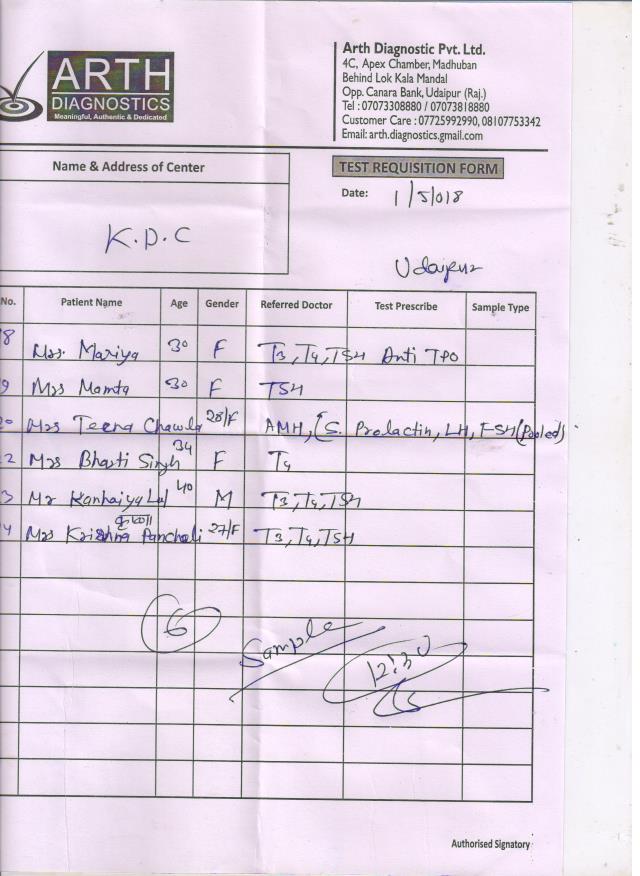 ARTH
DIAGNOSTICS
Meaningful, Authentic & Dedicated
Arth Diagnostic Pvt. Ltd.
4C, Apex Chamber, Madhuban
Behind Lok Kala Mandal
Opp. Canara Bank, Udaipur (Raj.)
Tel : 07073308880 / 07073818880
Customer Care : 07725992990, 08107753342
Email: arth.diagnostics.gmail.com
Name & Address of Center
TEST REQUISITION FORM
Date: 1/5/018
K.D.C
Udaipur
No. Patient Name Age Gender Referred Doctor Test Prescribe Sample Type
8 Mrs. Mariya 30 F T3, T4, TSH Anti TPO
9 Mrs Mamta 30 F TSH
20 Mrs Teena Chawla 28/F AMH, (S. Prolactin, LH, FSH (Pooled)
2 Mrs Bharti Singh 34 F T4
3 Mr Kanhaiya Lal 40 M T3, T4, TSH
4 Mrs Krishna Panchali 27/F T3, T4, TSH
6
Sample
12:30
Authorised Signatory